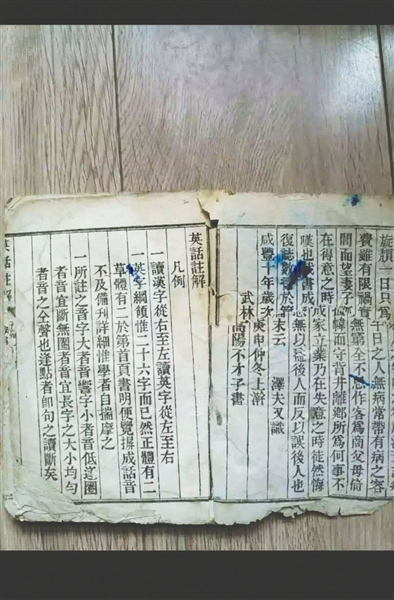 旋頽一日只爲千日之人無病常帶有病之容
費雖有限禍實無全不作客爲商父母倚
閭而望妻子幃而守背井離鄉所爲何事不
在得意之時成家立業乃在失意之時徒然悔
嘆也書成無以益後人而反以誤後人也
復誌數於末云 澤夫又識
咸豐十年歲次庚申仲冬上澣
武林高陽不才子書
英話註解
凡例
一讀漢字從右至左讀英字從左至右
一英字綱領惟二十六字而已然正體有二
草體有二於第首頁書明便覽揖成話音
不及備刋詳細惟學者自揣摩之
一所註之音字大者音響字小者音低逐圈
者音宜斷無圈者音宜長字之大小均勻
者音之仝聲也逢點者卽句之讀斷矣
英話註解